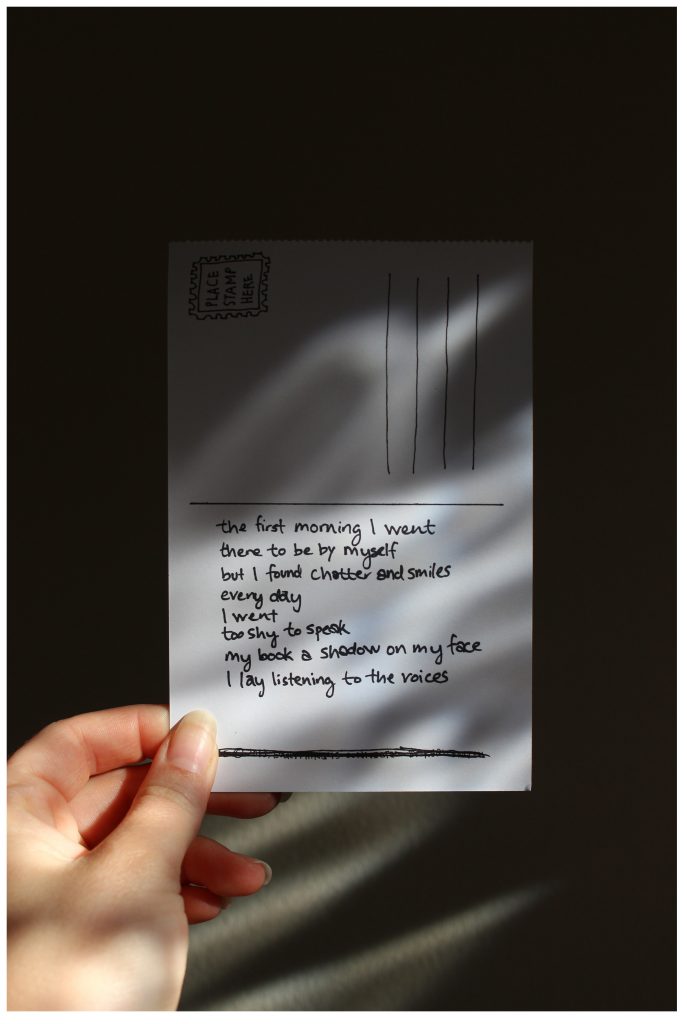 PLACE
STAMP
HERE
the first morning I went
there to be by myself
but I found chatter and smiles
every day
I went
too shy to speak
my book a shadow on my face
I lay listening to the voices